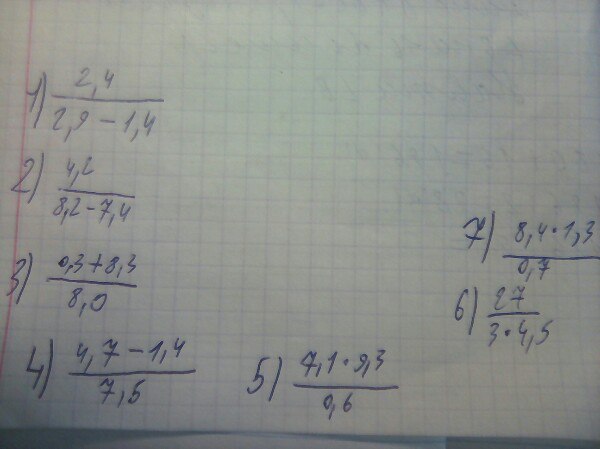 1) 2,4 / 2,9 - 1,4
2) 4,2 / 8,2 - 7,4
3) 0,3 + 8,3 / 8,0
4) 4,7 - 1,4 / 7,5
5) 7,1 · 9,3 / 0,6
7) 8,4 · 1,3 / 0,7
6) 27 / 3 · 4,5